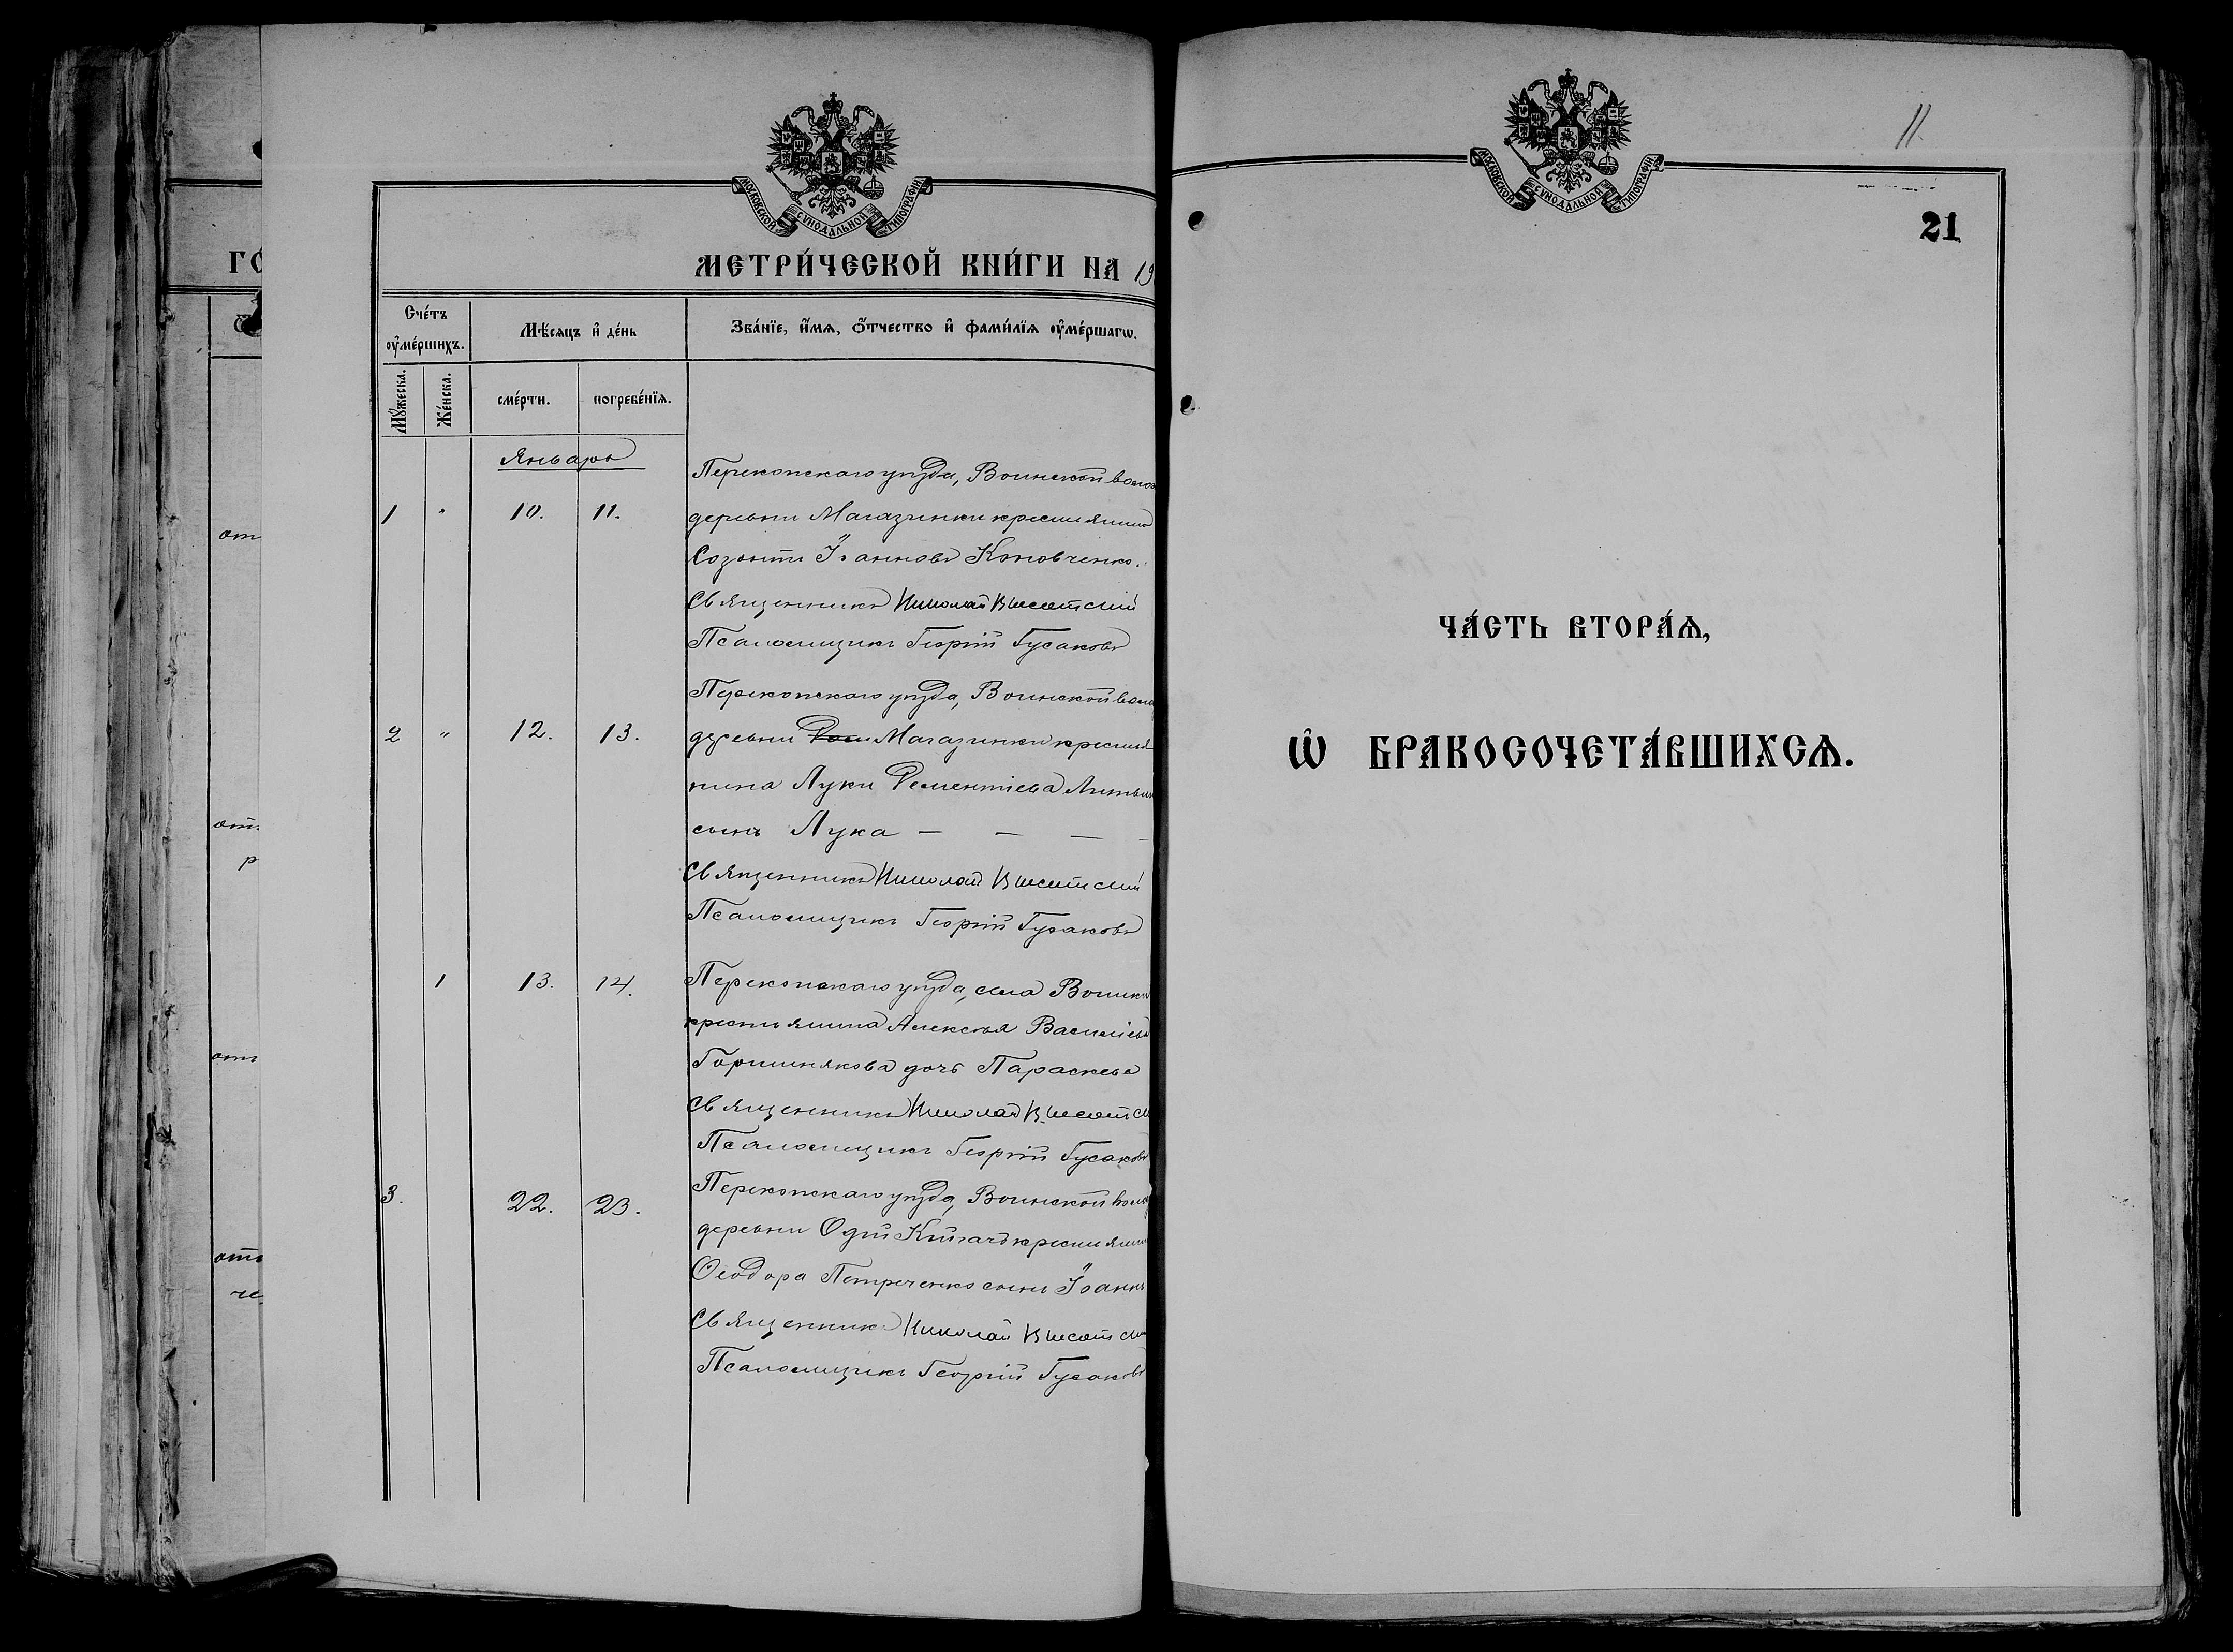 МОСКОВСКОЙ СѴНОДАЛЬНОЙ ТИПОГРАФІИ
МЕТРИ́ЧЕСКОЙ КНИ́ГИ НА 19
Сче́тъ оу҆ме́ршихъ.
Мѣ́сяцъ и҆ де́нь
Зва́нїе, и҆́мѧ, ѻ҆́тчество и҆ фами́лїѧ оу҆ме́ршагѡ.
Мꙋ́жеска.
Же́нска.
сме́рти.
погребе́нїѧ.
Январь
Перекопскаго уѣзда, Воинской воло
1 " 10. 11. деревни Магазинки крестьянинъ
Созонтъ Іоанновъ Коновченко.
Священникъ Николай
Псаломщикъ Георгій Гусаковъ
Перекопскаго уѣзда, Воинской воло
2 " 12. 13. деревни Магазинки крестья
нина Луки Дементіева Литвин
сынъ Лука — — —
Священникъ Николай
Псаломщикъ Георгій Гусаковъ
1 13. 14. Перекопскаго уѣзда, села Воинки
крестьянина Алексѣя Василіева
Горшнякова дочь Параскева
Священникъ Николай
Псаломщикъ Георгій Гусаковъ
3. 22. 23. Перекопскаго уѣзда, Воинской воло
деревни крестьянина
Ѳеодора Петреченко сынъ Іоаннъ
Священникъ Николай
Псаломщикъ Георгій Гусаковъ
ГО
от
от.
р
отъ
отъ
че
МОСКОВСКОЙ СѴНОДАЛЬНОЙ ТИПОГРАФІИ
11
21
ЧА́СТЬ ВТОРА́Ѧ,
Ѡ҆ БРАКОСОЧЕТА́ВШИХСѦ.